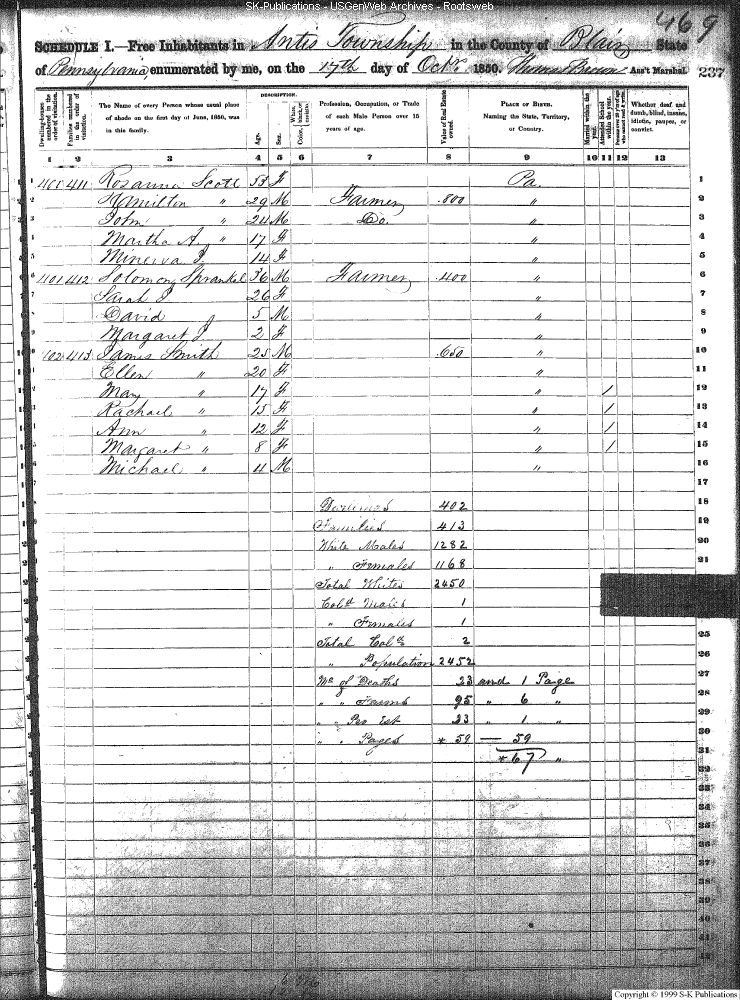 SK-Publications - USGenWeb Archives - Rootsweb
469
SCHEDULE I.—Free Inhabitants in Antis Township in the County of Blair State
of Pennsylvania, enumerated by me, on the 17th day of Octr. 1850. Thomas Brown Ass't Marshal. 237
Dwelling-houses numbered in the order of visitation.
Families numbered in the order of visitation.
The Name of every Person whose usual place of abode on the first day of June, 1850, was in this family.
DESCRIPTION.
Age.
Sex.
Color,
Profession, Occupation, or Trade of each Male Person over 15 years of age.
Value of Real Estate owned.
PLACE OF BIRTH. Naming the State, Territory, or Country.
Married within the year.
Attended School within the year.
Whether deaf and dumb, blind, insane, idiotic, pauper, or convict.
1 2 3 4 5 6 7 8 9 10 11 12 13
400 411 Rosanna Scott 53 F Pa. 1
Hamilton " 29 M Farmer 800 " 2
John " 24 M Do. " 3
Martha A. " 17 F " 4
Minerva J. 14 F " 5
401 412 Solomon Sprankel 36 M Farmer 400 " 6
Sarah J 26 F " 7
David 5 M " 8
Margaret J. 2 F " 9
402 413 James Smith 25 M 650 " 10
Ellen " 20 F " 11
May " 17 F " / 12
Rachael " 15 F " / 13
Ann " 12 F " / 14
Margaret " 8 F " / 15
Michael " 4 M " 16
17
Dwellings 402 18
Families 413 19
White Males 1282 20
" Females 1168 21
Total Whites 2450
Cold Males 1
" Females 1
Total Cold 2 25
" Population 2452 26
No of Deaths 23 and 1 Page 27
" " Farms 95 " 6 " 28
" " Pro Est 23 " 1 " 29
" " Pages * 59 — 59 30
* 67 " 31
32
33
34
35
36
37
38
39
40
41
42
Copyright © 1999 S-K Publications